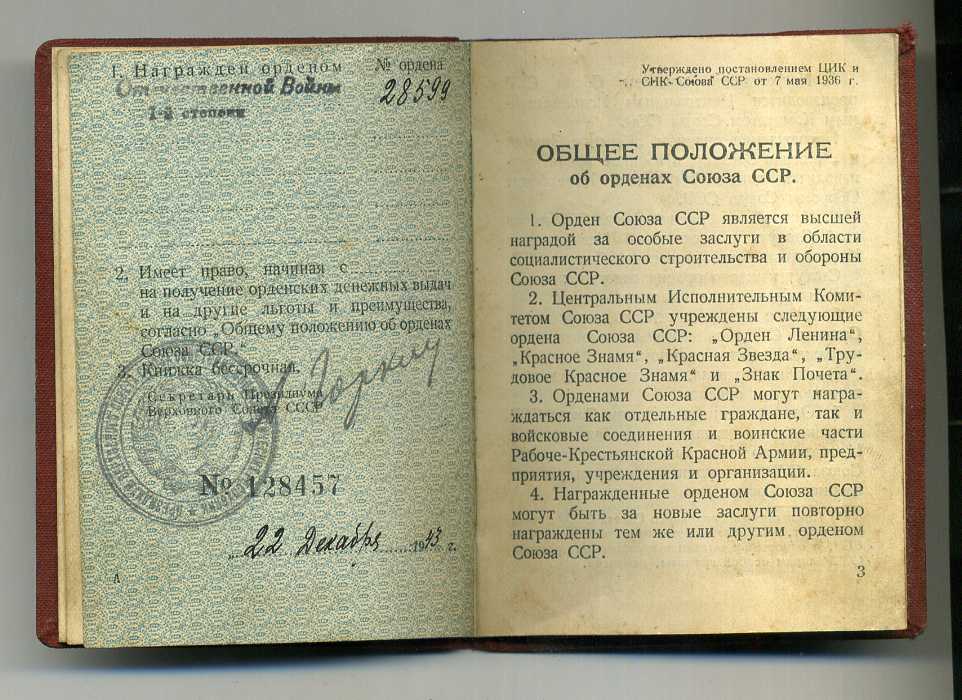 1. Награжден орденом № ордена
Отечественной Войны 28599
1-й степени
2. Имеет право, начиная с
на получение орденских денежных выдач
и на другие льготы и преимущества,
согласно „Общему положению об орденах
Союза ССР."
3. Книжка бессрочная.
Секретарь Президиума
Верховного Совета СССР
А. Горкин
№ 128457
„22 Декабря 1943 г.
А
Утверждено постановлением ЦИК и
СНК Союза ССР от 7 мая 1936 г.
ОБЩЕЕ ПОЛОЖЕНИЕ
об орденах Союза ССР.
1. Орден Союза ССР является высшей
наградой за особые заслуги в области
социалистического строительства и обороны
Союза ССР.
2. Центральным Исполнительным Коми-
тетом Союза ССР учреждены следующие
ордена Союза ССР: „Орден Ленина“,
„Красное Знамя“, „Красная Звезда“, „Тру-
довое Красное Знамя“ и „Знак Почета“.
3. Орденами Союза ССР могут награ-
ждаться как отдельные граждане, так и
войсковые соединения и воинские части
Рабоче-Крестьянской Красной Армии, пред-
приятия, учреждения и организации.
4. Награжденные орденом Союза ССР
могут быть за новые заслуги повторно
награждены тем же или другим орденом
Союза ССР.
3